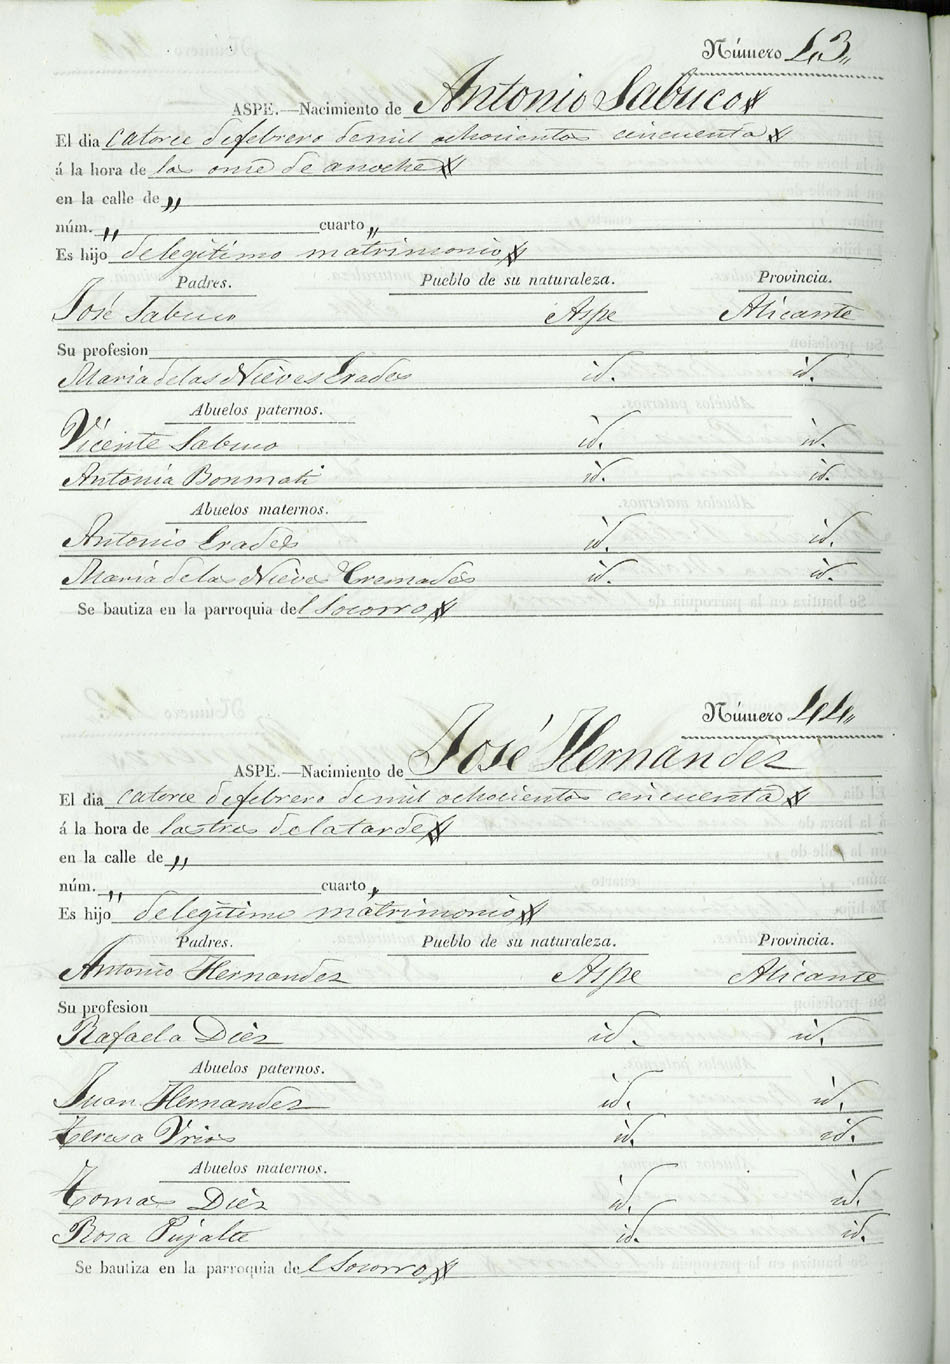 Número 43„
ASPE.—Nacimiento de Antonio Sabuco
El dia catorce de febrero de mil ochocientos cincuenta
á la hora de las onse de anoche
en la calle de „
núm. „ cuarto „
Es hijo de legitimo matrimonio
Padres. Pueblo de su naturaleza. Provincia.
José Sabuco Aspe Alicante
Su profesion
Maria de las Nieves Grades id. id.
Abuelos paternos.
Vicente Sabuco id. id.
Antonia Bonmati id. id.
Abuelos maternos.
Antonio Grades id. id.
Maria de las Nieves Cremades id. id.
Se bautiza en la parroquia del Socorro
Número 44„
ASPE.—Nacimiento de José Hernandez
El dia catorce de febrero de mil ochocientos cincuenta
á la hora de las tres de la tarde
en la calle de „
núm. „ cuarto „
Es hijo de legitimo matrimonio
Padres. Pueblo de su naturaleza. Provincia.
Antonio Hernandez Aspe Alicante
Su profesion
Rafaela Diez id. id.
Abuelos paternos.
Juan Hernandez id. id.
Teresa Vrios id. id.
Abuelos maternos.
Tomas Diez id. id.
Rosa Pujalte id. id.
Se bautiza en la parroquia del Socorro